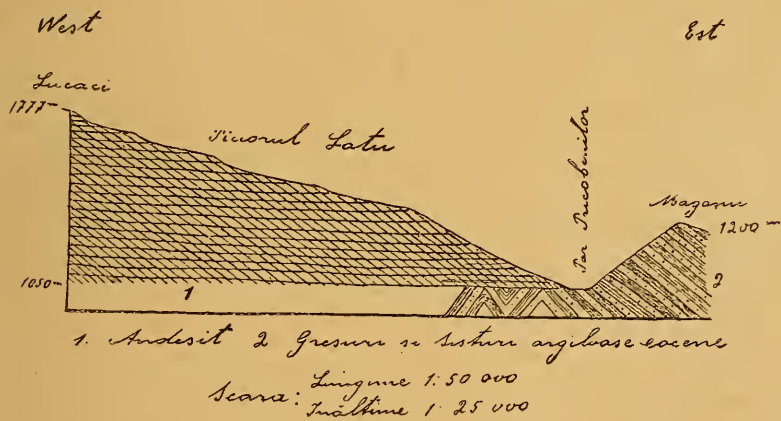 West Est
Lucaci
1777
Piciorul Latu
Par Pricobenilor
Magasu
1200
1050
1
2
1. Andesit 2 Gresuri si sisturi argiloase eocene
Scara: Lungime 1:50 000
Inăltime 1:25 000